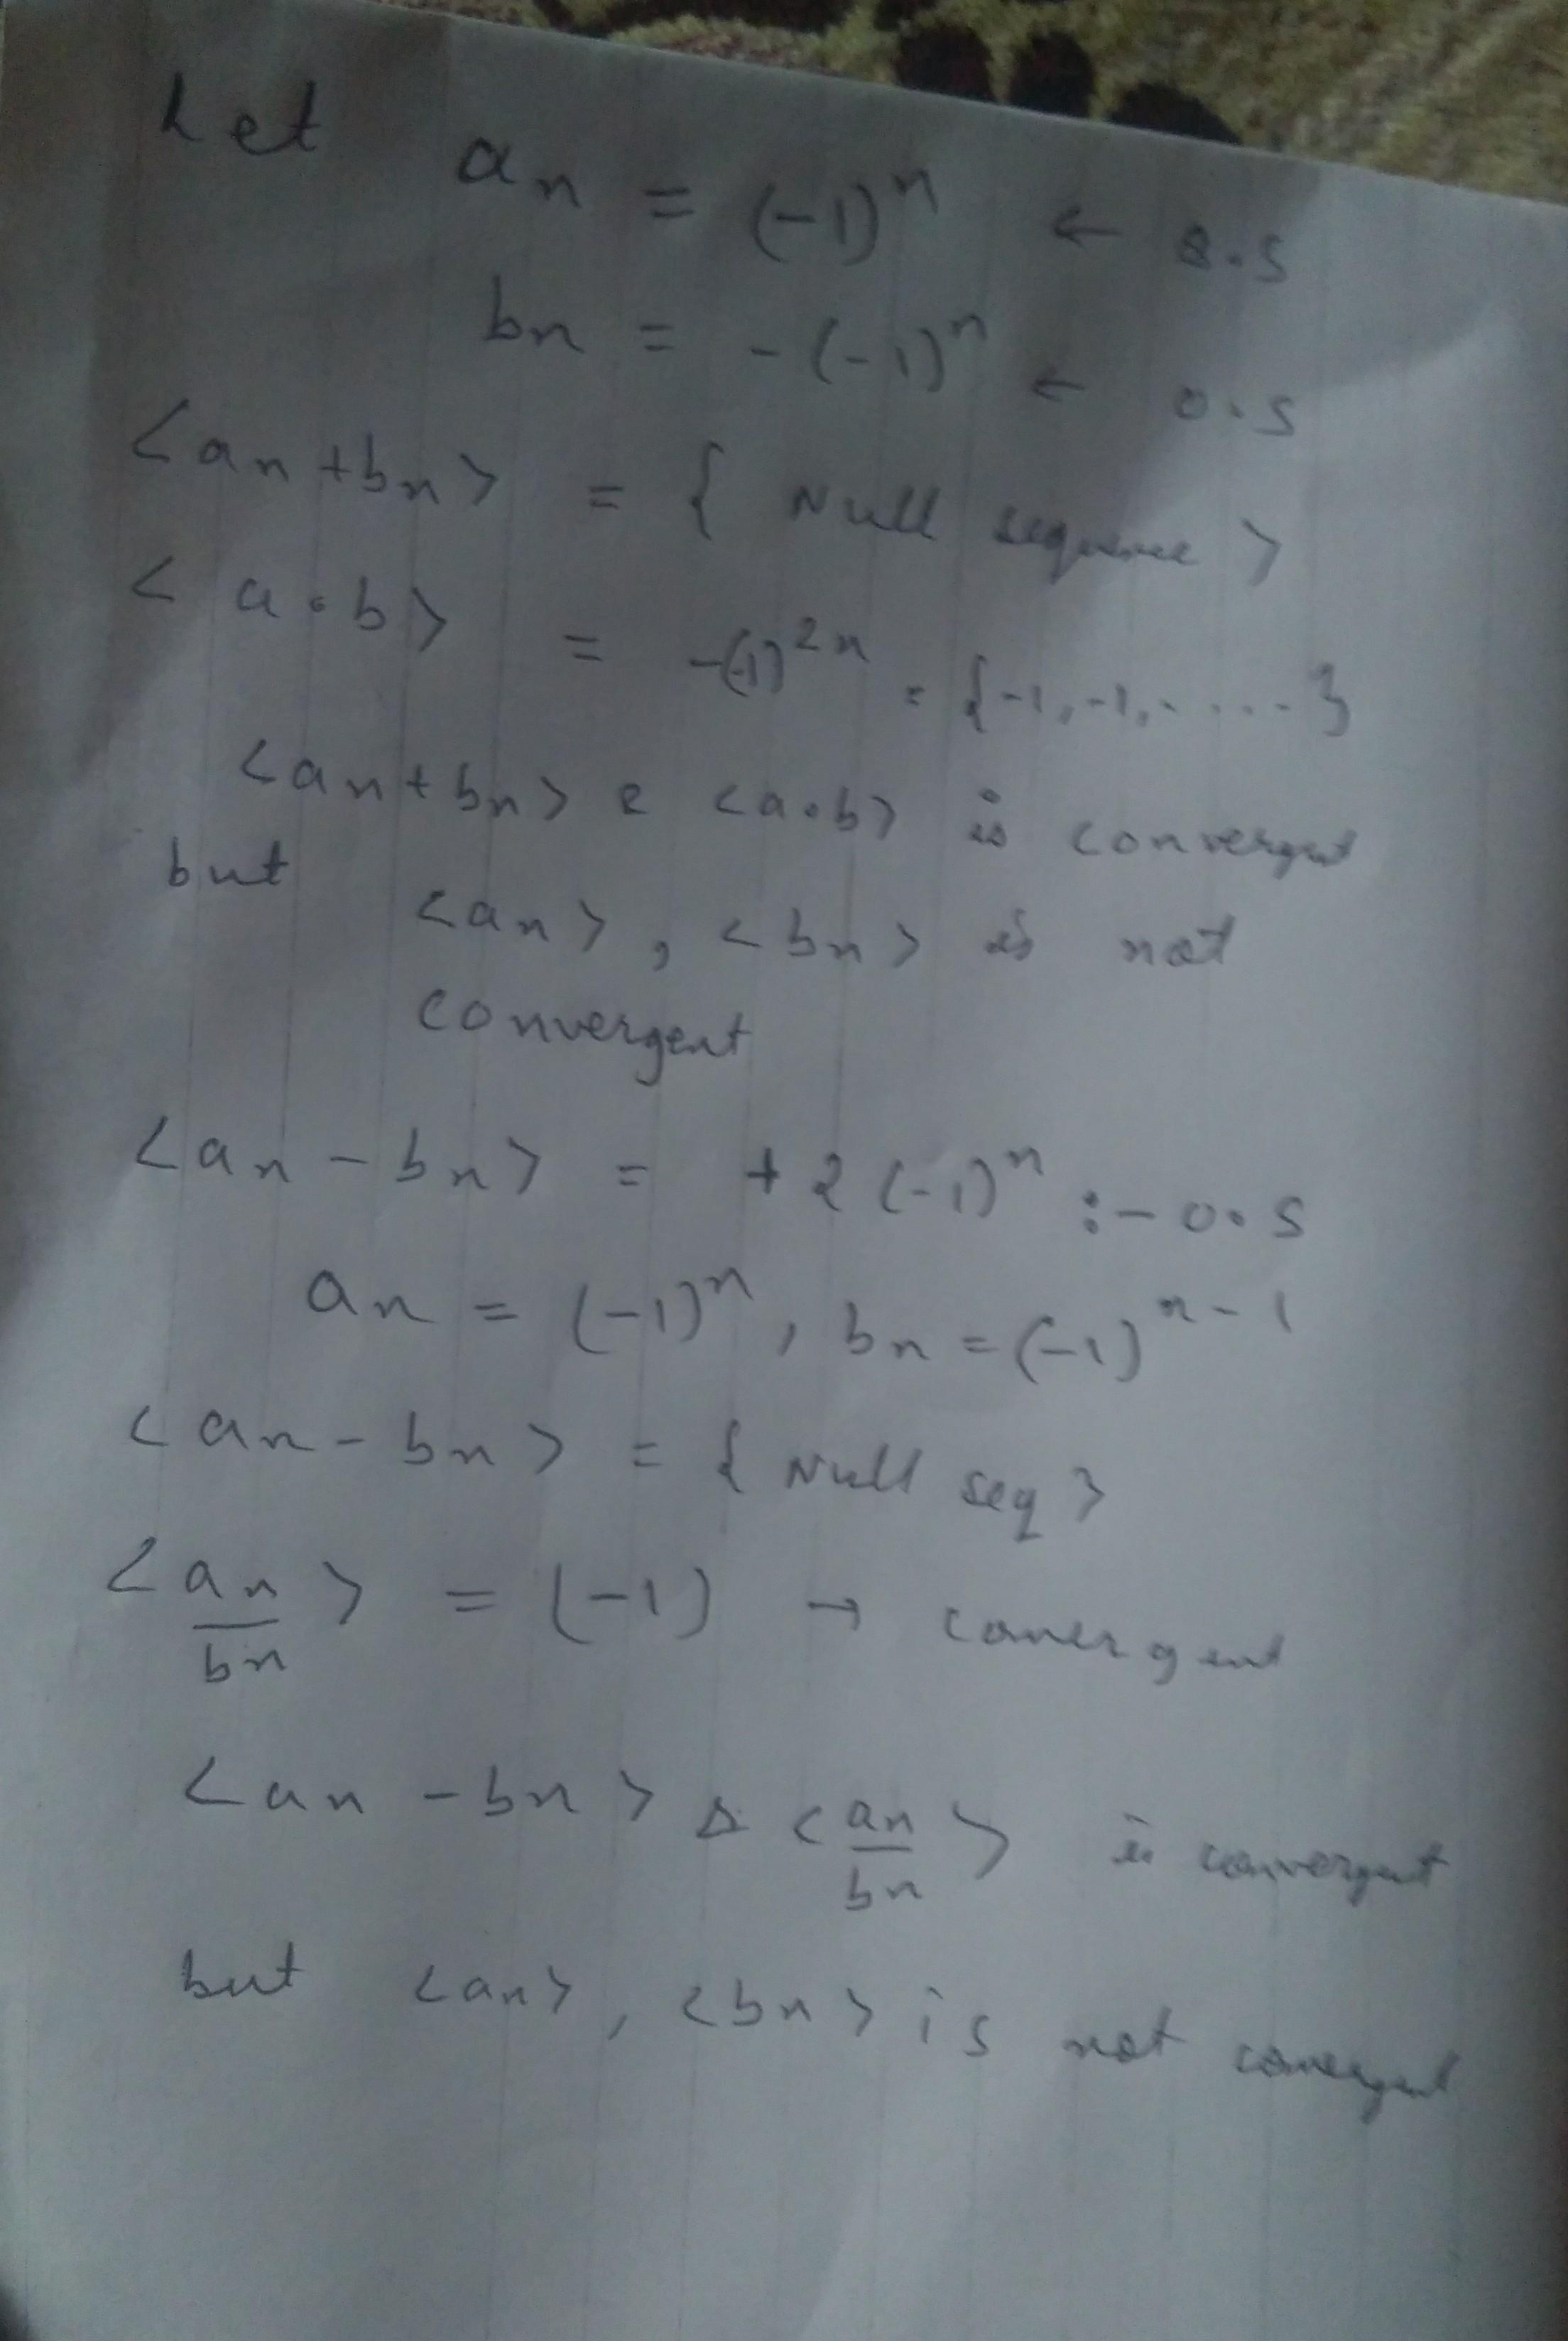 Let an = (-1)^n ← 0.5
bn = -(-1)^n ← 0.5
<an+bn> = { Null sequence >
< a.b> = -(-1)^2n = {-1,-1,.....}
<an+bn> & <a.b> is convergent
but
<an>, <bn> is not
convergent
<an - bn> = + 2 (-1)^n :- 0.5
an = (-1)^n, bn = (-1)^n-1
<an - bn> = { Null seq }
<an/bn> = (-1) → convergent
<an - bn> & <an/bn> is convergent
but <an>, <bn> is not convergent